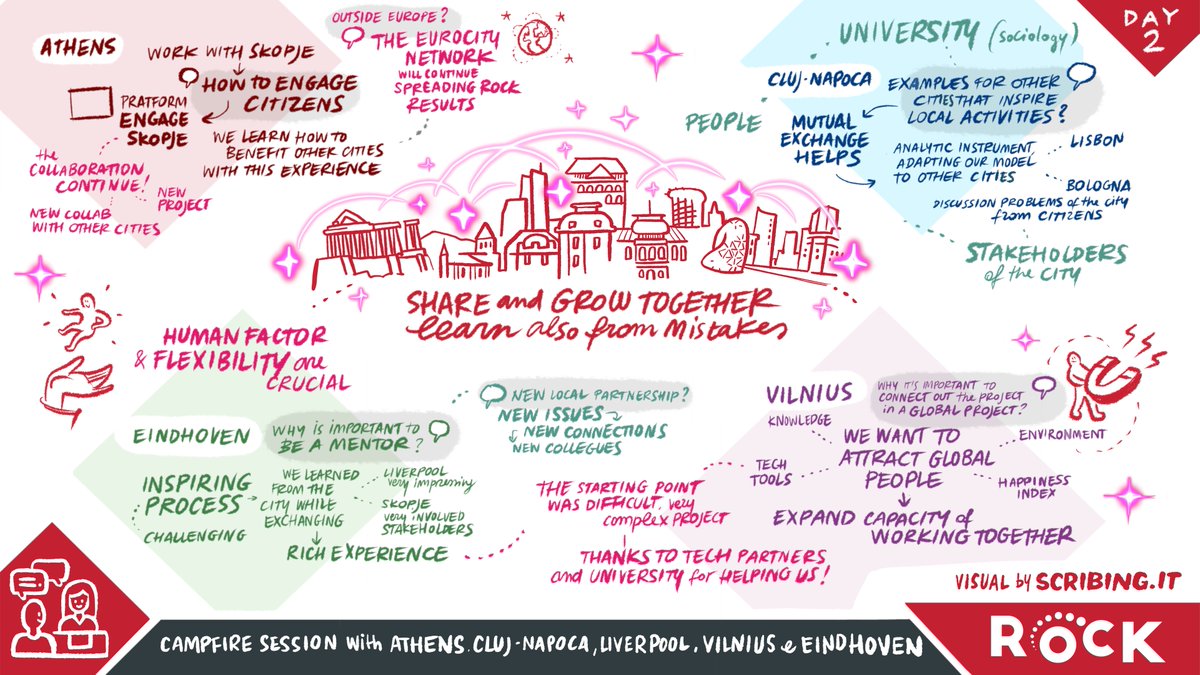 DAY
2
ATHENS
WORK WITH SKOPJE
HOW TO ENGAGE
CITIZENS
PRATFORM
ENGAGE
SKOPJE
WE LEARN HOW TO
BENEFIT OTHER CITIES
WITH THIS EXPERIENCE
the
COLLABORATION
CONTINUE!
NEW
PROJECT
NEW COLLAB
WITH OTHER CITIES
OUTSIDE EUROPE?
THE EUROCITY
NETWORK
WILL CONTINUE
SPREADING ROCK
RESULTS
UNIVERSITY (sociology)
CLUJ-NAPOCA
EXAMPLES FOR OTHER
CITIES THAT INSPIRE
LOCAL ACTIVITIES?
PEOPLE
MUTUAL
EXCHANGE
HELPS
ANALYTIC INSTRUMENT
ADAPTING OUR MODEL
TO OTHER CITIES
LISBON
BOLOGNA
DISCUSSION PROBLEMS of the city
from CITIZENS
STAKEHOLDERS
of the CITY
SHARE and GROW TOGETHER
learn also from Mistakes
HUMAN FACTOR
& FLEXIBILITY are
CRUCIAL
EINDHOVEN
WHY IS IMPORTANT TO
BE A MENTOR?
INSPIRING
PROCESS
CHALLENGING
WE LEARNED
FROM THE
CITY WHILE
EXCHANGING
LIVERPOOL
very impressing
SKOPJE
very INVOLVED
STAKEHOLDERS
RICH EXPERIENCE
NEW LOCAL PARTNERSHIP?
NEW ISSUES
NEW CONNECTIONS
NEW COLLEGUES
THE STARTING POINT
WAS DIFFICULT, very
complex PROJECT
THANKS TO TECH PARTNERS
and UNIVERSITY for HELPING US!
VILNIUS
WHY IT'S IMPORTANT TO
CONNECT OUT the PROJECT
IN A GLOBAL PROJECT?
KNOWLEDGE
TECH
TOOLS
WE WANT TO
ATTRACT GLOBAL
PEOPLE
ENVIRONMENT
HAPPINESS
INDEX
EXPAND CAPACITY of
WORKING TOGETHER
VISUAL by SCRIBING.IT
CAMPFIRE SESSION with ATHENS. CLUJ-NAPOCA, LIVERPOOL. VILNIUS e EINDHOVEN
ROCK